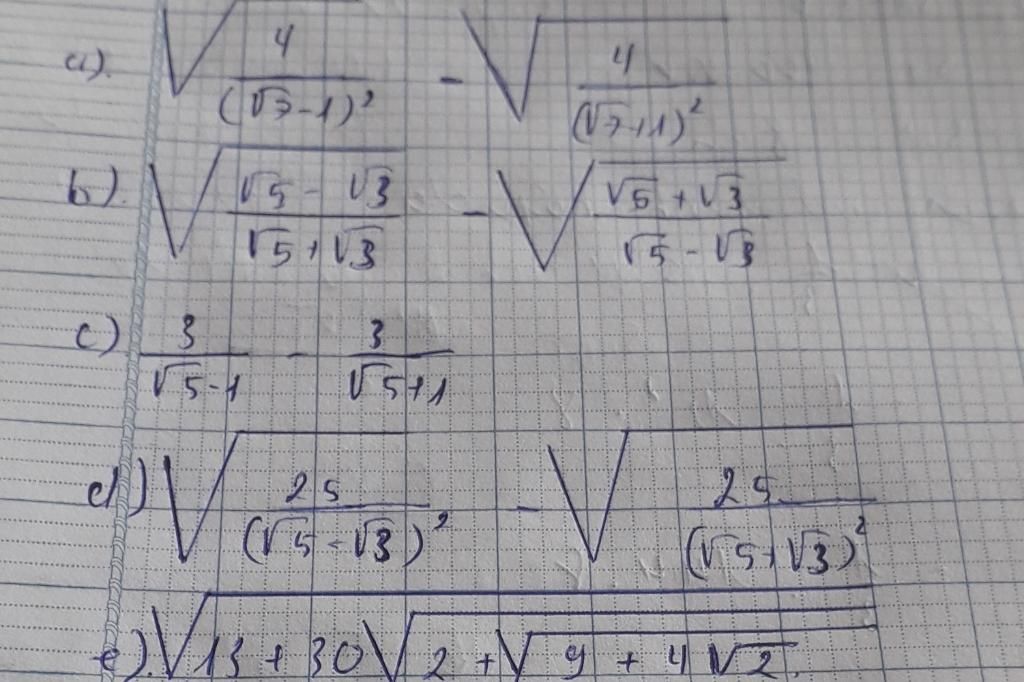 a). √(4/(√7-1)²) - √(4/(√7+1)²)
b). √((√5 - √3)/(√5 + √3)) - √((√5 + √3)/(√5 - √3))
c) 3/(√5-1) - 3/(√5+1)
d) √(25/(√5-√3)²) - √(25/(√5+√3)²)
e). √(13 + 30√(2 + √(9 + 4√2)))